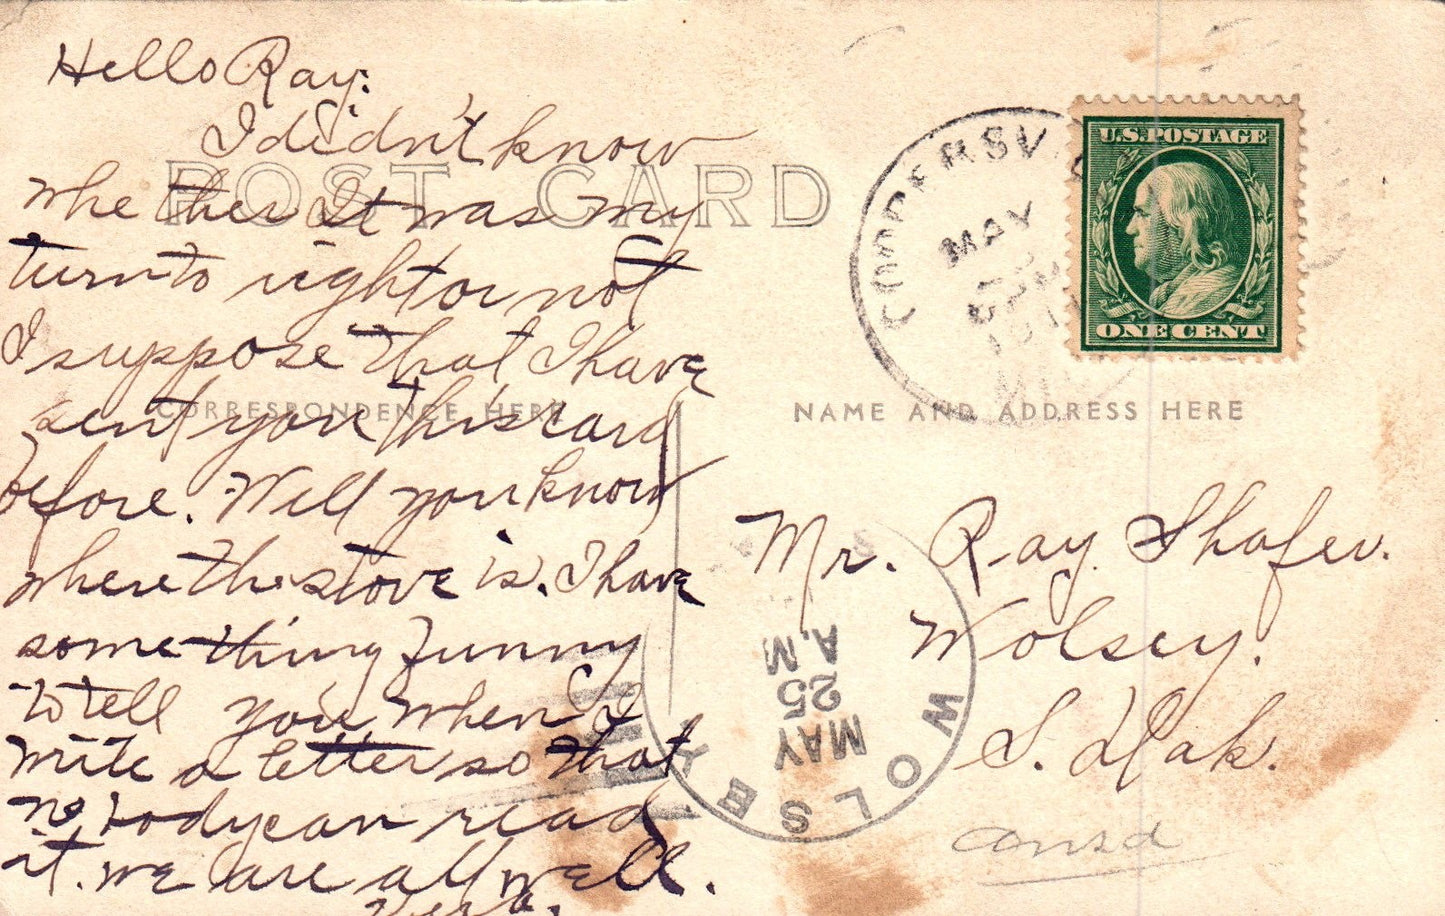 Hello Ray:
I didn't know
POST CARD
whether It was my
turn to right or not
I suppose that I have
sent you this card
CORRESPONDENCE HERE
before. Well you know
where the stove is. I have
something funny
to tell you when I
write a letter so that
no body can read
it. we are all well.
U.S. POSTAGE
ONE CENT
MAY
NAME AND ADDRESS HERE
Mr. Ray Shafer.
Wolsey.
S. Dak.
WOLSEY
MAY
25
A.M
ansd